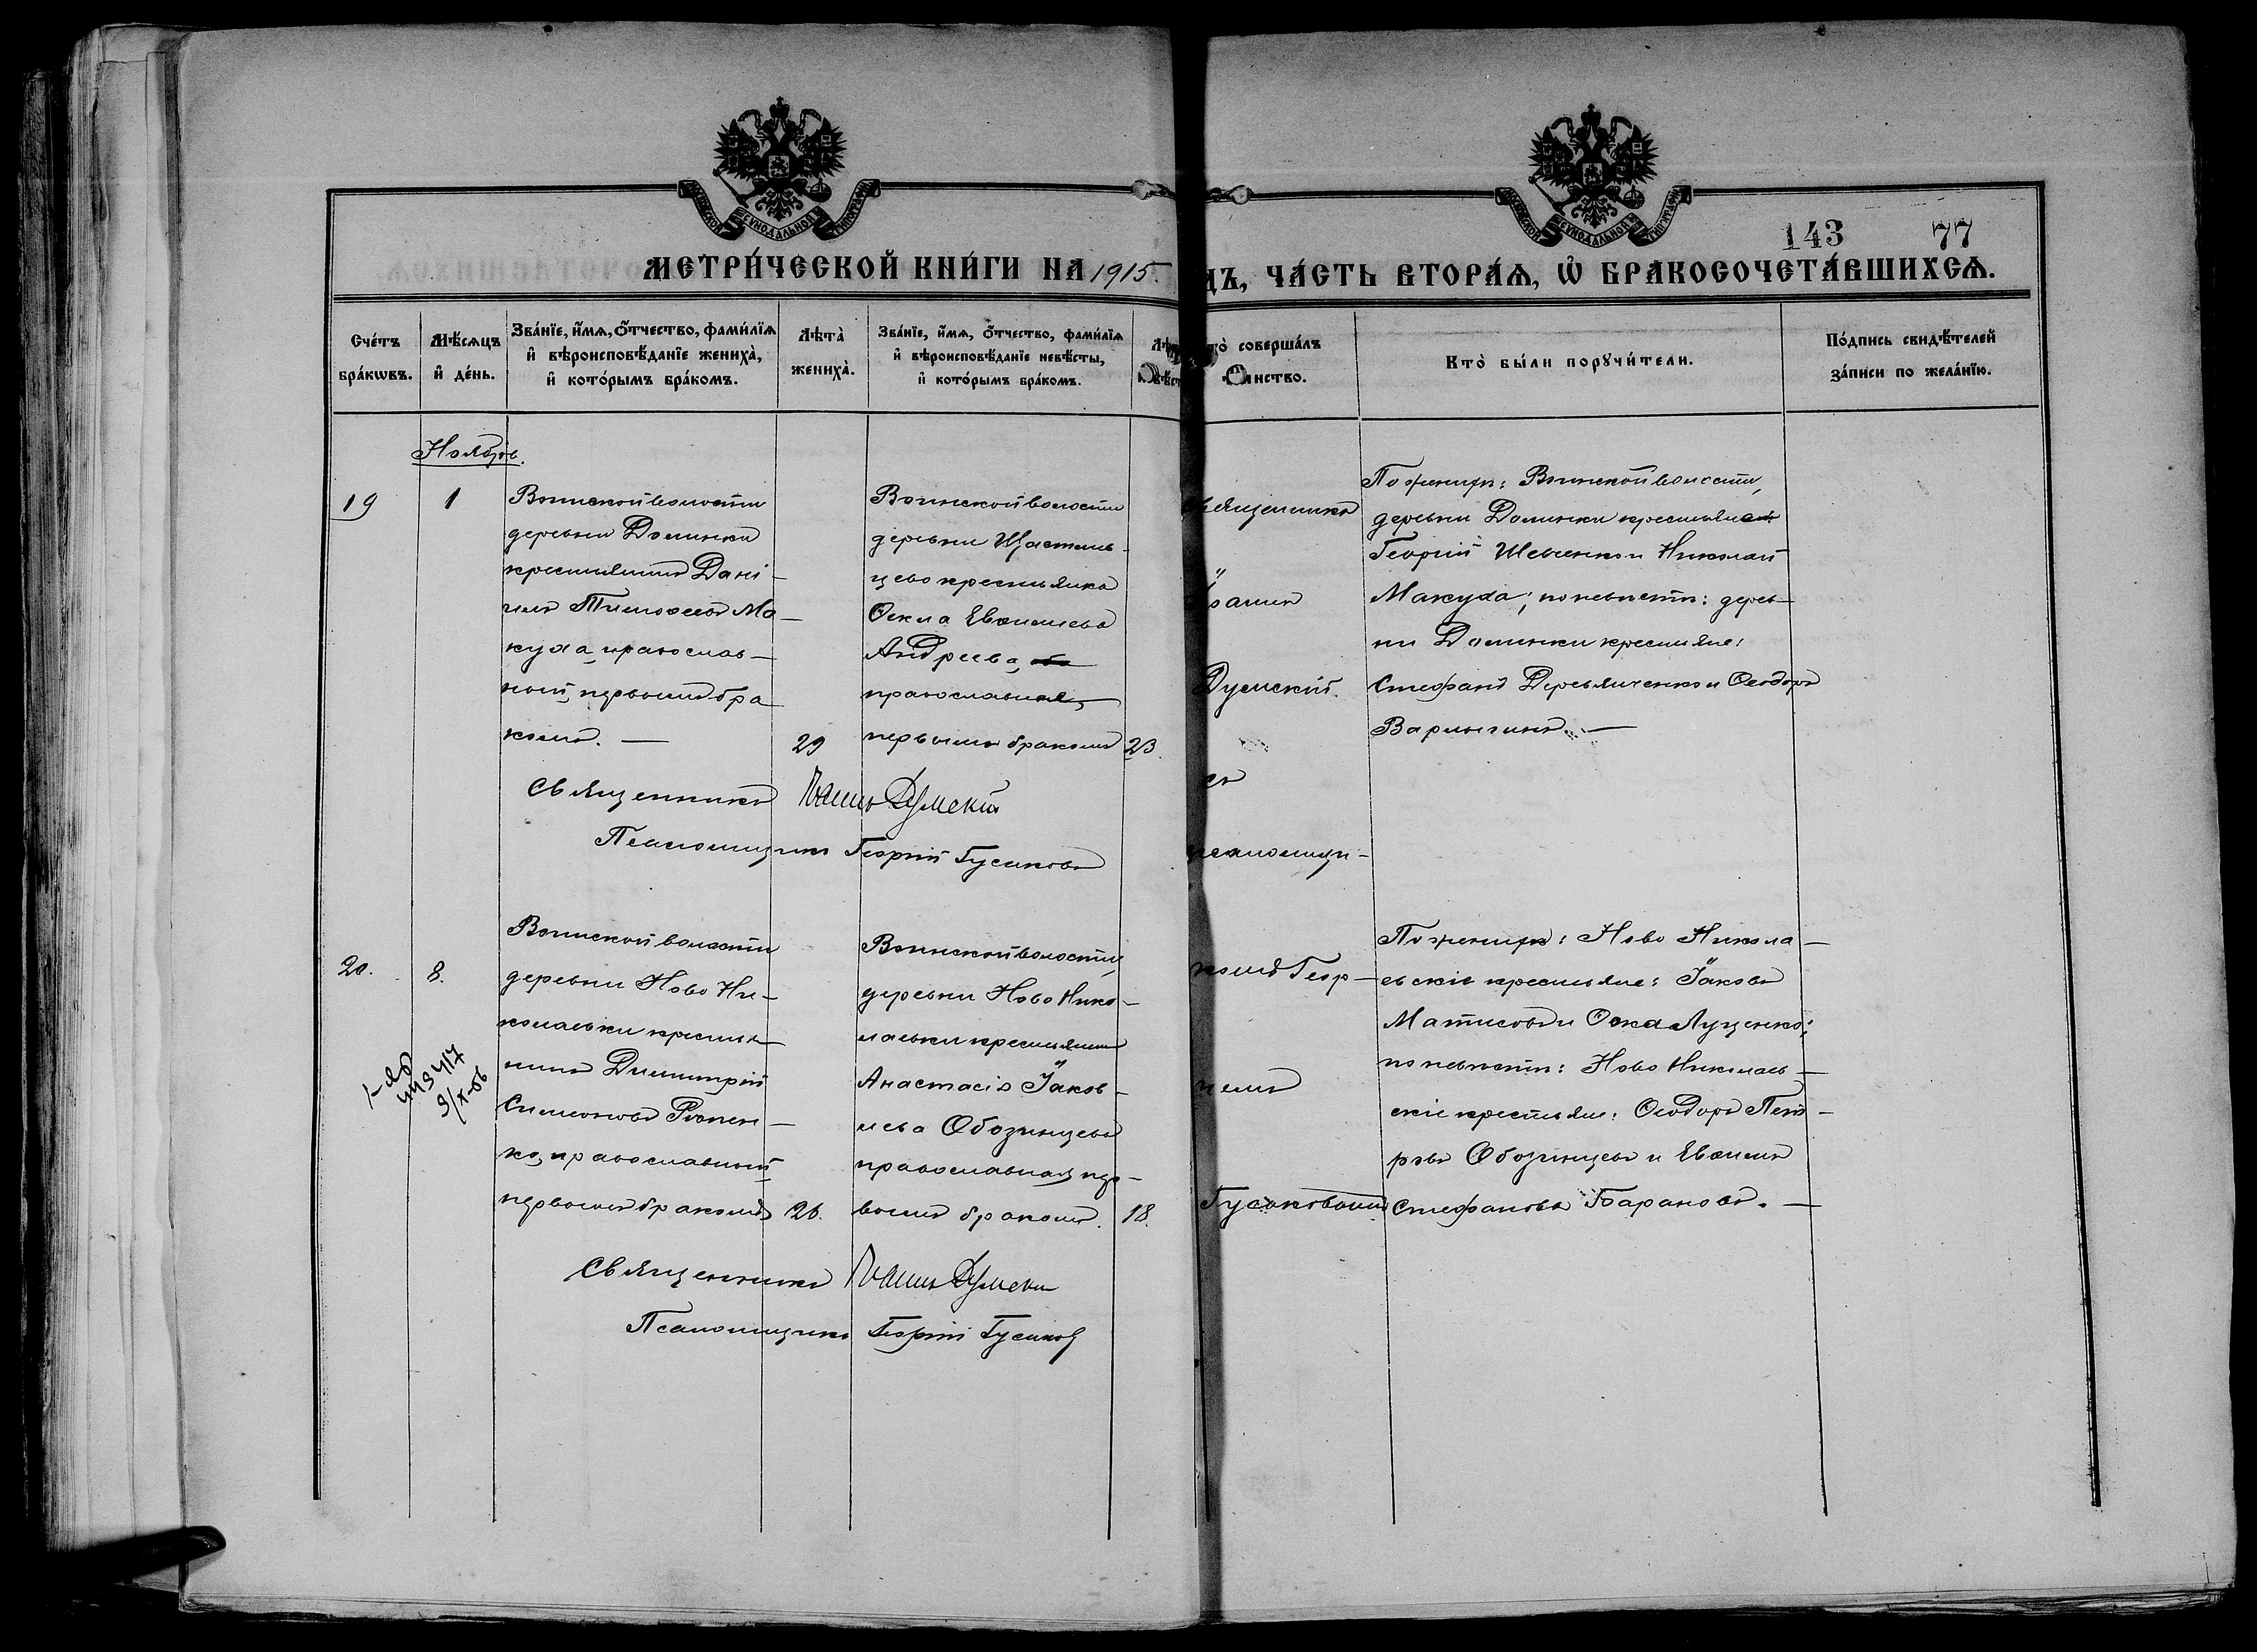 143 77
МЕТРИ́ЧЕСКОЙ КНИ́ГИ НА 1915.
ДЪ, ЧА́СТЬ ВТОРА́Ѧ, Ѡ҆ БРАКОСОЧЕТА́ВШИХСѦ.
Сче́тъ бра́кѡвъ.
Мѣ́сѧцъ и҆ де́нь.
Зва́нїе, и҆́мѧ, ѻ҆́тчество, фами́лїѧ
и҆ вѣроисповѣ́данїе жениха̀,
и҆ кото́рымъ бра́комъ.
Лѣта̀ жениха̀.
Зва́нїе, и҆́мѧ, ѻ҆́тчество, фами́лїѧ
и҆ вѣроисповѣ́данїе невѣ́сты,
и҆ кото́рымъ бра́комъ.
то̀ соверша́лъ
Кто̀ бы́ли порꙋчи́тели.
По́дпись свидѣ́телей
за́писи по жела́нїю.
Ноябрь.
19
1
Воинской волости
деревни Долинки
крестьянинъ Дані-
илъ Тимоѳеевъ Ма-
куха, православ-
ный, первымъ бра
комъ. —
29
Воинской волости
деревни Щастлив-
цево крестьянка
Ѳекла Евѳимiева
Андреева,
православная,
первымъ бракомъ
23.
священникъ
Іоаннъ
Думскій.
съ
псаломщи-
По женихѣ: Воинской волости,
деревни Долинки крестьяне:
Георгій Шевченко и Николай
Макуха; по невѣстѣ: дерев-
ни Долинки крестьяне:
Стефанъ Деревянченко и Ѳеодоръ
Варлыгинъ. —
Священникъ Іоаннъ Думскій
Псаломщикъ Георгій Гусаковъ
20.
8.
Воинской волости
деревни Ново Ни-
колаевки крестья-
нинъ Димитрій
Симеоновъ
ко, православный
первымъ бракомъ
26.
Воинской волости,
деревни Ново Нико-
лаевки крестьянка
Анастасія Іаков-
лева Обозинцева
православная, пер-
вымъ бракомъ.
18.
комъ Геор-
гіемъ
Гусаковымъ
По женихѣ: Ново Никола-
евскіе крестьяне: Іаковъ
Матисовъ и Ѳока Луценко;
по невѣстѣ: Ново Николаев-
скіе крестьяне: Ѳеодоръ Пет-
ровъ Обозинцевъ и Евѳимъ
Стефановъ Барановъ. —
Священникъ Іоаннъ Думскій
Псаломщикъ Георгій Гусаковъ